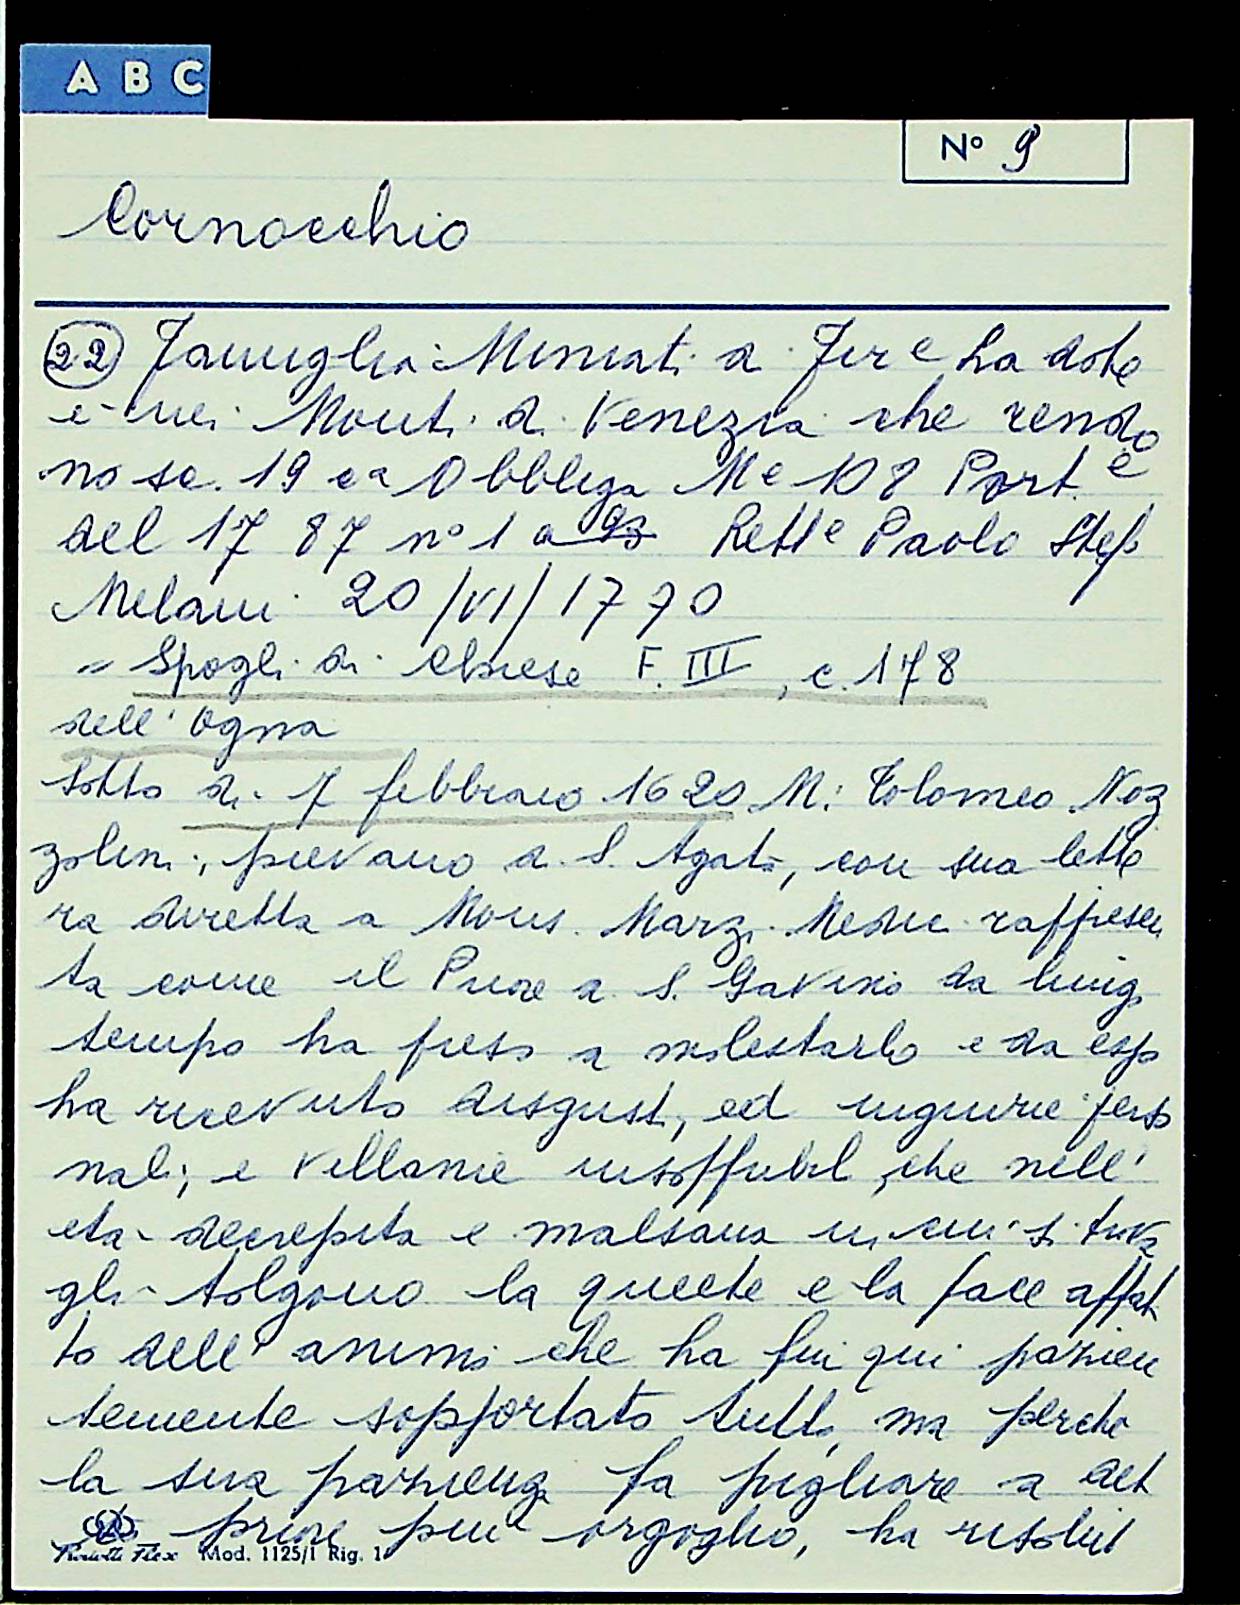 A B C
N° 9
Cornocchio
22 Famiglia Miniati di Fire ha dote
è nei Monti di Venezia che rendo
no sc. 19 ca Obbliga Me 108 Part.e
del 1787 n° 1 a 93 Rett.e Paolo Stef
Melani 20/VI/1790
= Spogli di Chiese F. III, c. 178
dell'Ogna
Sotto di 7 febbraio 1620 M. Tolomeo Noz
zolini, pievano di S. Agata, con sua lette
ra diretta a Mons. Marzi Medici rappresen
ta come il Priore di S. Gavino da lung
tempo ha preso a molestarlo e da esso
ha ricevuto disgusti, ed ingiurie perso
nali, e villanie insoffribil, che nell'
età decrepita e malsana in cui si trova
gli tolgono la quiete e la pace affat
to dell'animo che ha fin qui pazien
temente sopportato tutto, ma perché
la sua pazienza fa pigliare a det
priore più orgoglio, ha risolut
Mod. 1125/1 Rig. 1